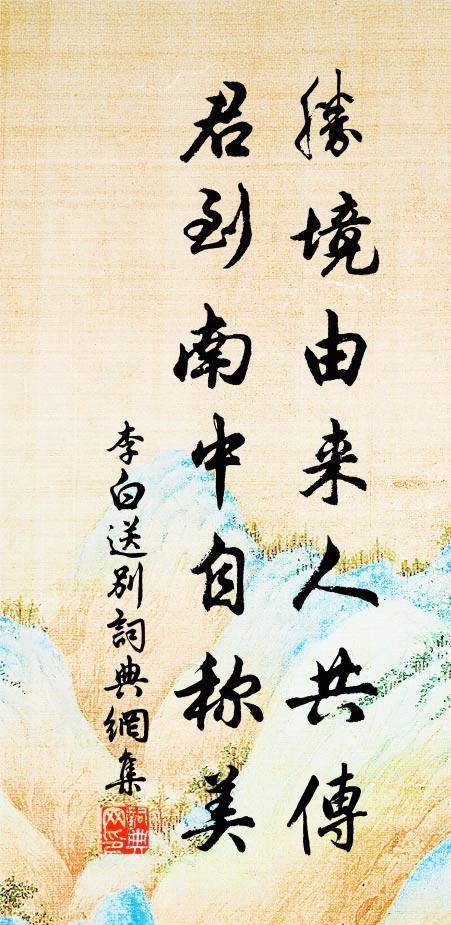 勝境由来人共傳
君到南中自称美
李白送别詞典網集
詞典
网印